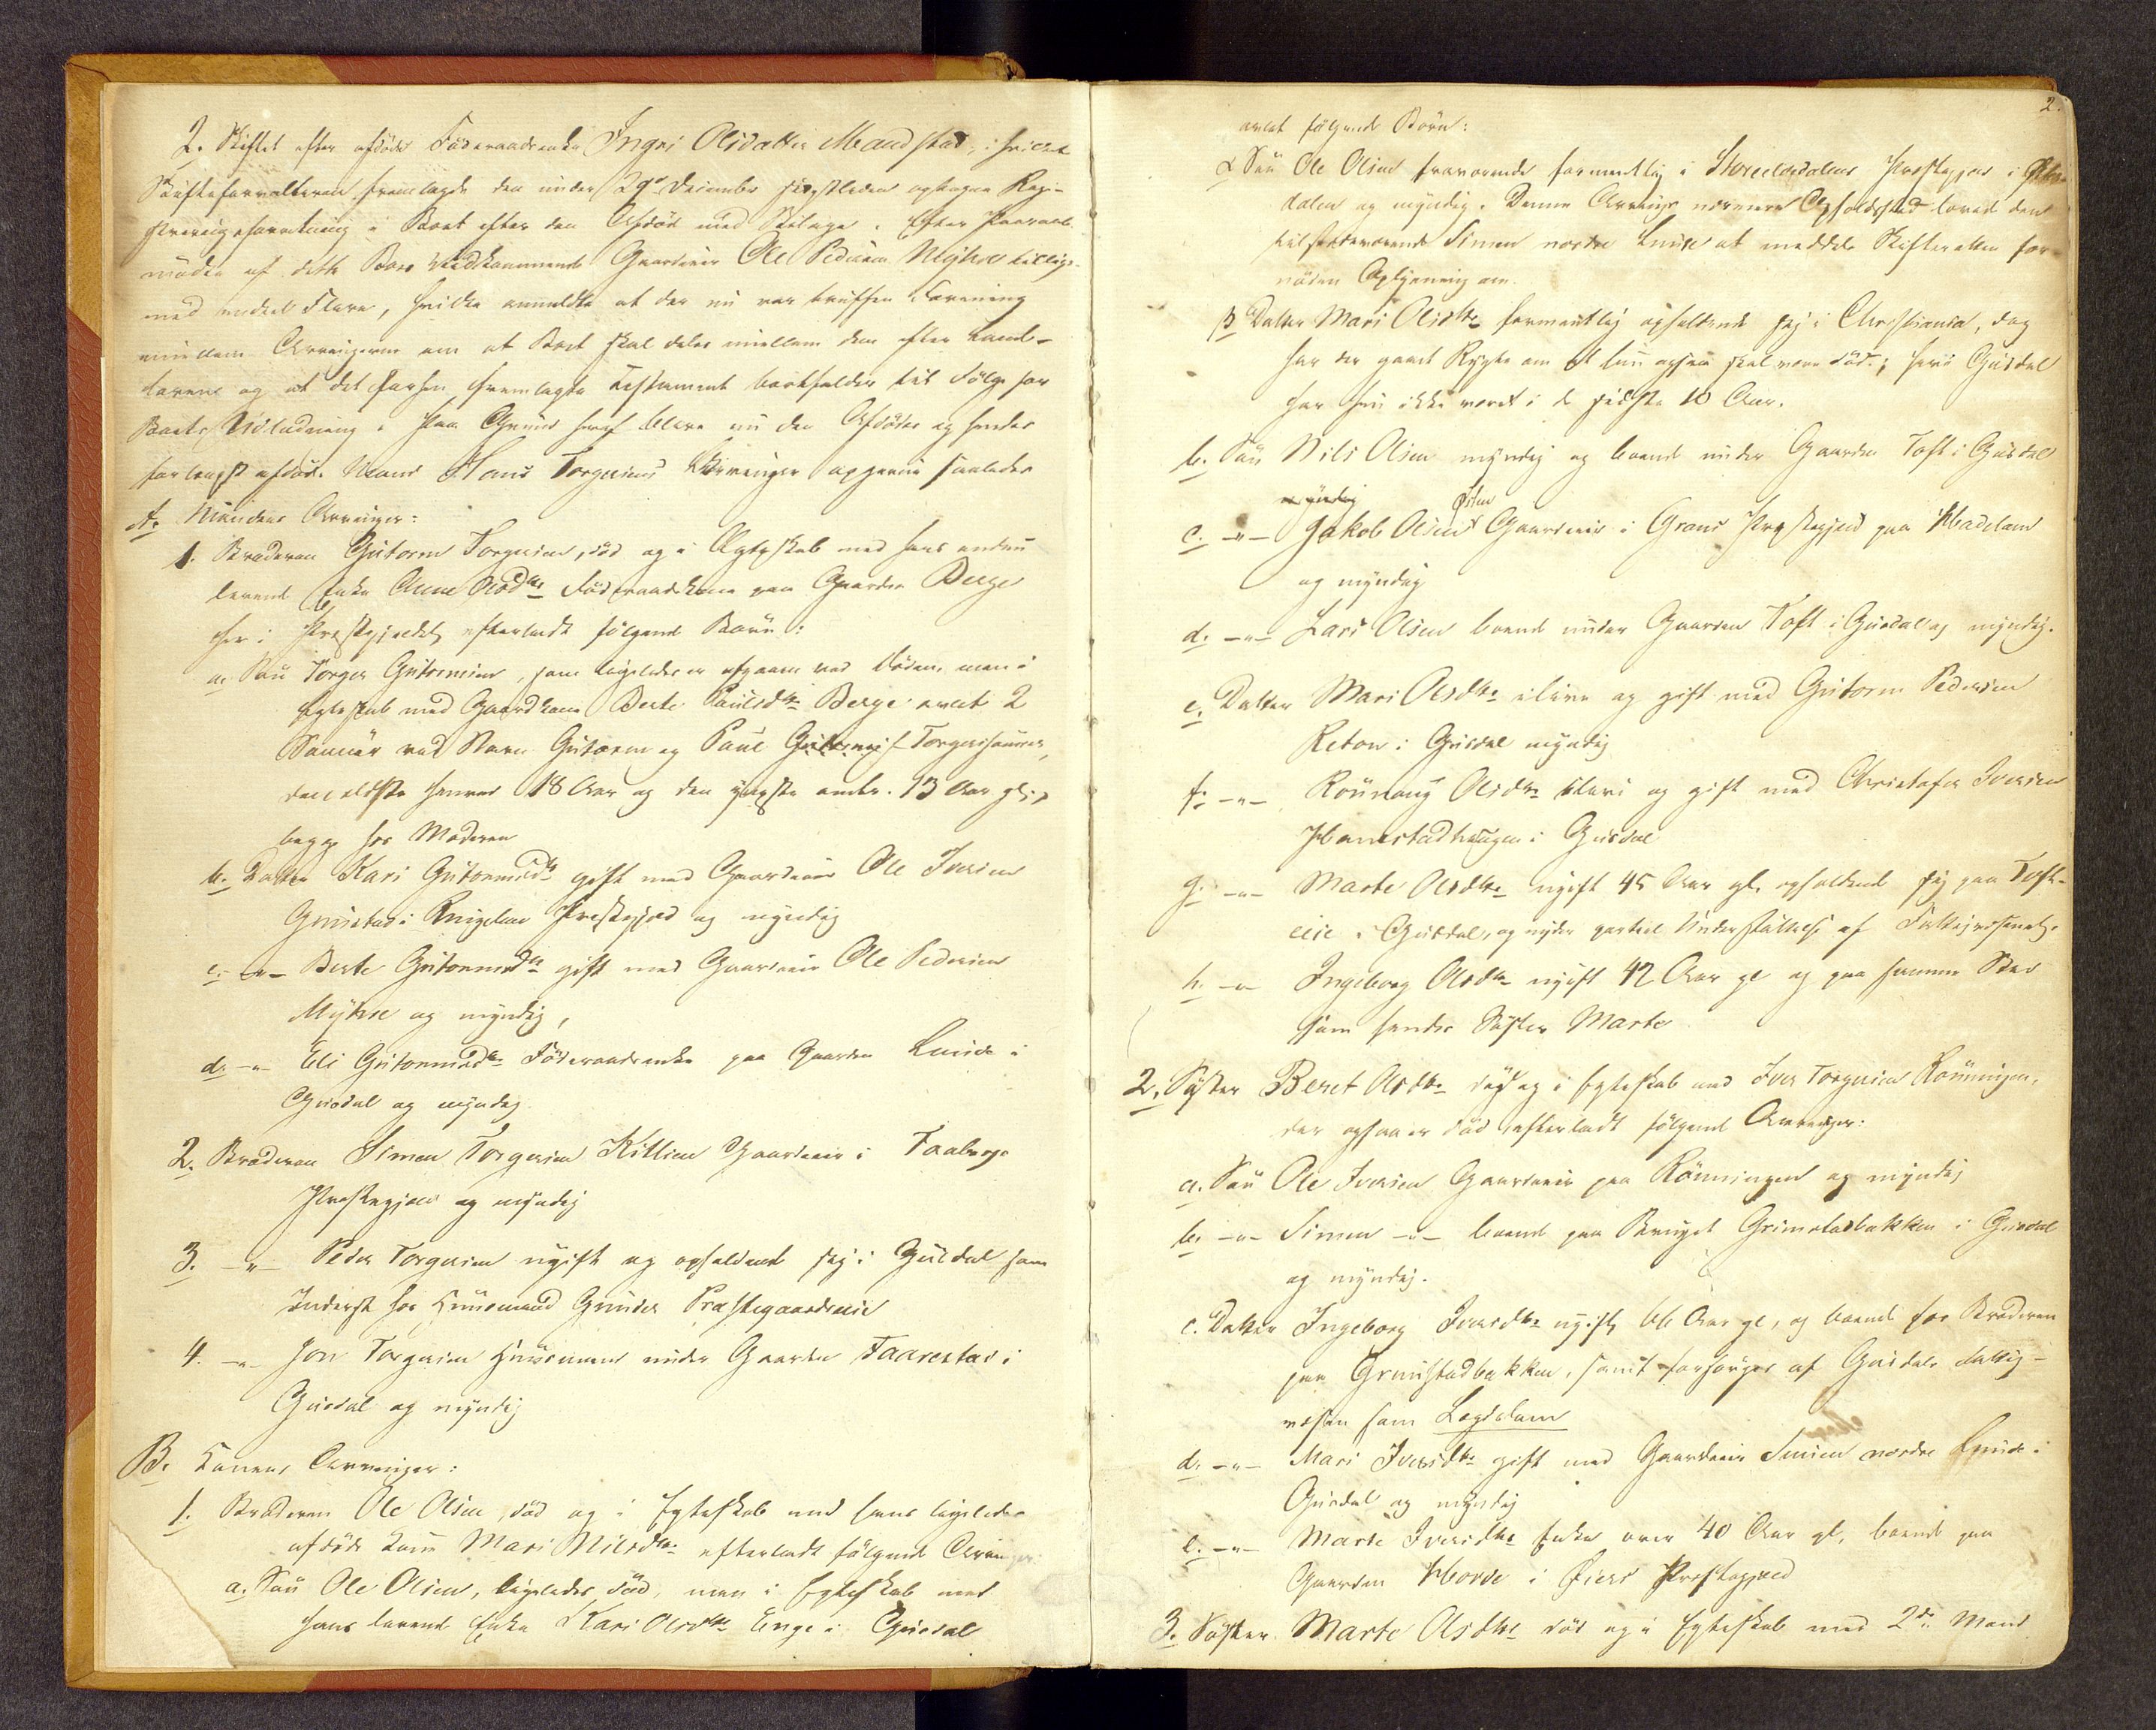 2. Skiftet efter afdøde Föderaadsenke Ingri Olsdatter Maudstad, i hvilket
Skifteforvalteren fremlagde den under 29de December sidstleden optagne Regi-
streringsforretning i Boet efter den Afdöde med Bilage. Efter
möden af dette Boes Vedkommende Gaardeier Ole Pedersen Myhre tillige-
med endeel Flere, hvilke anmeldte at der nu var truffen Forening
mellem Arvingerne om at Boet skal deles imellem dem efter Land-
lovene og at det forhen fremlagte Testament bortfalder til Følge for
Boets Udlodning. Paa Grund heraf bleve nu den Afdödes og hendes
forlængst afdöde Mand Hans Torgersens Arvinger opgivne saaledes
A. Mandens Arvinger:
1. Broderen Guttorm Torgersen, död og i Ægteskab med hans endnu
levende Enke Anne Olsdtr Föderaadskone paa Gaarden Berge
her i Præstegjeldet efterladt fölgende Børn:
a. Sön Torger Guttormsen, som ligeledes er afgaaen ved Döden, men i
Egteskab med Gaardkone Berte Paulsdtr Berge avlet 2
Sönner ved Navn Guttorm og Paul Torgersönner,
den ældste henved 18 Aar og den yngste omtr. 13 Aar gl.,
begge hos Moderen
b. Datter Kari Guttormsdtr gift med Gaardeier Ole Iversen
Grimstad i Ringebu Præstegjeld og myndig
c. -"- Berte Guttormsdtr gift med Gaardeier Ole Pedersen
Myhre og myndig,
d. -"- Eli Guttormsdtr Föderaadsenke paa Gaarden Lunde i
Gusdal og myndig
2. Broderen Simen Torgersen Killien Gaardeier i Faaberg
Præstegjeld og myndig
3. -"- Peder Torgersen ugift og opholdende sig i Gusdal som
Inderst hos Huusmand Gunder Præstegaardseie
4. -"- Jon Torgersen Huusmand under Gaarden Faarestad i
Gusdal og myndig
B. Konens Arvinger:
1. Broderen Ole Olsen, död og i Egteskab med hans ligeledes
afdöde Kone Mari Nilsdtr efterladt fölgende Arvinger:
a. Sön Ole Olsen, ligeledes död, men i Egteskab med
hans levende Enke Kari Olsdtr Enge i Gusdal
2.
avlet fölgende Börn:
α Sön Ole Olsen fraværende formentlig i Storelvdalens Præstegjeld i
dalen og myndig. Denne Arvings nærmere Opholdssted lovede den
tilstedeværende Simen nordre Lunde at meddele Skifteretten for-
nöden Oplysning om.
β Datter Mari Olsdtr formentlig opholdende sig i Christiania, dog
har der gaaet Rygte om at hun ogsaa skal være död; hos Gusdal
har hun ikke været i de sidste 10 Aar.
b. Sön Nils Olsen myndig og boende under Gaarden Toft i Gusdal
myndig
c. -"- Jakob Olsen Gaardeier i Grans Præstegjeld paa Hadeland
og myndig
d. -"- Lars Olsen boende under Gaarden Toft i Gusdal og myndig.
e. Datter Mari Olsdtr ilive og gift med Guttorm Pedersen
i Gusdal myndig
f. -"- Rönnaug Olsdtr ilive og gift med Christofer Iversen
Hanestadhaugen i Gusdal
g. -"- Marte Olsdtr ugift 45 Aar gl. opholdende sig paa Toft-
eie i Gusdal, og nyder partiel Understöttelse af Fattigvæsenet.
h. -"- Ingeborg Olsdtr ugift 42 Aar gl og paa samme Sted
som hendes Söster Marte
2. Söster Beret Olsdtr död og i Egteskab med Iver Torgersen Rönningen,
der ogsaa er död, efterladt fölgende Arvinger:
a. Sön Ole Iversen Gaardeier paa Rönningen og myndig
b. -"- Simen -"- boende paa Bruget Grimstadbakken i Gusdal
og myndig.
c. Datter Ingeborg Iversdtr ugift, 66 Aar gl, og boende hos Broderen
paa Grimstadbakken, samt forsörges af Gusdals Fattig-
væsen som Lægdslem
d. -"- Mari Iversdtr gift med Gaardeier Simen nordre Lunde i
Gusdal og myndig
e. -"- Marte Iversdtr Enke over 40 Aar gl. boende paa
Gaarden Hovde i Öiers Præstegjeld
3. Söster Marte Olsdtr död og i Egteskab med 2den Mand